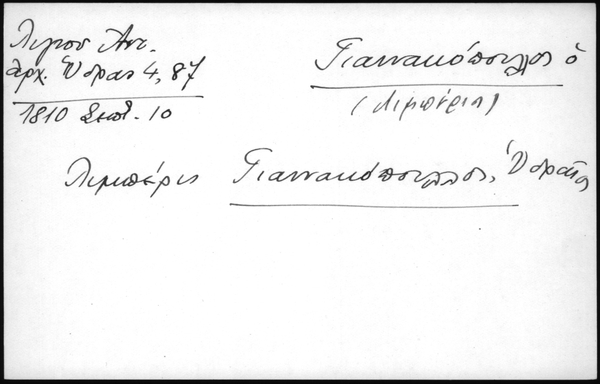 Λιγνού Αντ.
Αρχ. Ύδρας 4, 87
1810 Σεπτ. 10
Γιαννακόπουλος ὁ
(Λιμπέρης)
Λιμπέρις Γιαννακόπουλλος, Ὑδραῖος